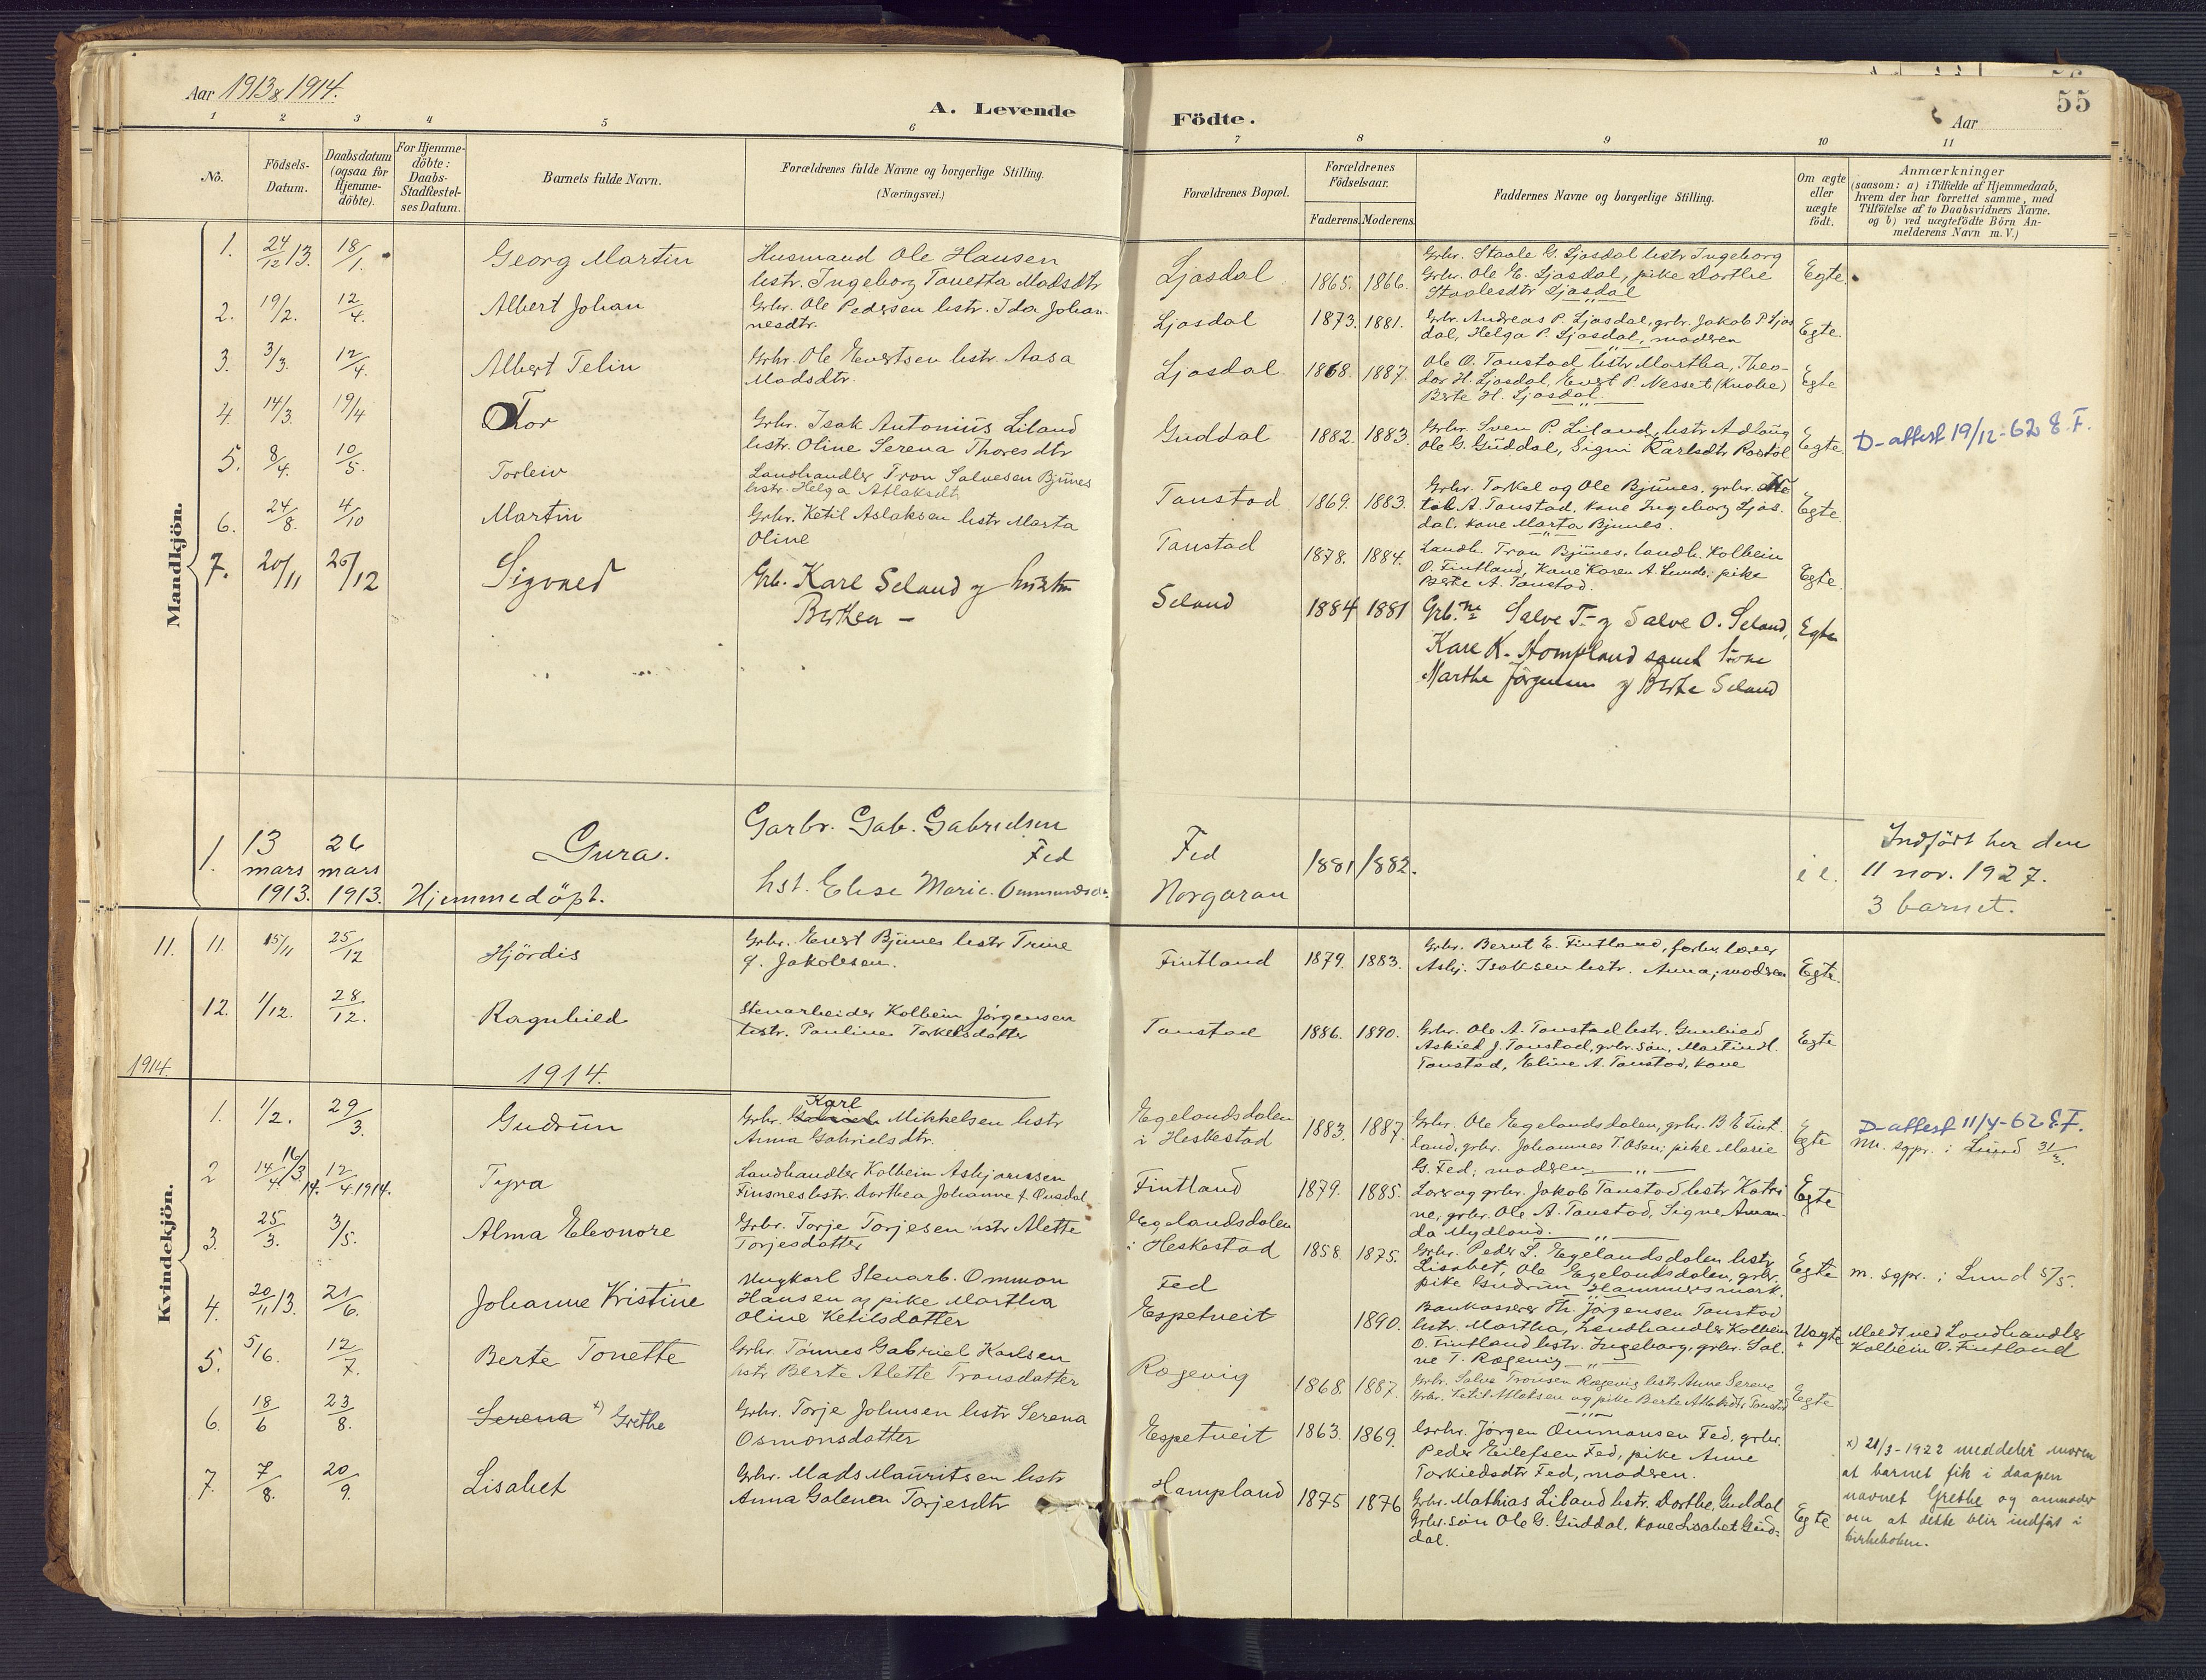 Aar 1913 & 1914.
A. Levende
Födte.
Aar
55
1 2 3 4 5 6 7 8 9 10 11
No.
Födsels-
Datum.
Daabsdatum
(ogsaa for
Hjemme-
döbte).
For Hjemme-
döbte:
Daabs-
Stadfæstel-
ses Datum.
Barnets fulde Navn.
Forældrenes fulde Navne og borgerlige Stilling.
(Næringsvei.)
Forældrenes Bopæl.
Forældrenes
Födselsaar.
Faderens. Moderens.
Faddernes Navne og borgerlige Stilling.
Om ægte
eller
uægte
födt.
Anmærkninger
(saasom: a) i Tilfælde af Hjemmedaab,
hvem der har forrettet samme, med
Tilföielse af to Daabsvidners Navne.
og b) ved uægtefödte Börn An-
melderens Navn m. V.)
Mandkjön.
1. 24/12 13. 18/1. Georg Martin
Husmand Ole Hansen
hstr. Ingeborg Tonetta Madsdtr
Ljosdal 1865. 1866.
Grbr. Staale G. Ljosdal hstr Ingeborg
Grbr. Ole E. Ljosdal, pike Dorthe
Staalesdtr Ljosdal
Egte.
2. 19/2. 12/4. Albert Johan
Grbr. Ole Pedersen hstr. Ida Johan-
nesdtr.
Ljosdal 1873. 1881.
Grbr. Andreas P. Ljosdal, grbr. Jakob P Ljos
dal, Helga P. Ljosdal, modren
Egte.
3. 3/3. 12/4. Albert Telin
Grbr. Ole Evertsen hstr. Aasa
Madsdtr.
Ljosdal 1868. 1887.
Ole O. Tonstad hstr Martha, Theo-
dor H. Ljosdal, Evert P. Nesset (Knabe)
Berte H. Ljosdal
Egte
4. 14/3. 19/4 Tor
Grbr. Isak Antonius Liland
hstr. Oline Serena Thoresdtr
Guddal 1882. 1883.
Grbr. Sven P. Liland, hstr Adlaug
Ole G. Guddal, Signi Karlsdtr Rostöl
Egte.
D-attest 19/12-62 E.F.
5. 8/4. 10/5. Torleiv
Landhandler Tron Salvesen Bjunes
hstr. Helga Atlaksdt.
Tonstad 1869. 1883.
Grbr. Torkel og Ole Bjunes, grbr.
A. Tonstad, kone Ingeborg Ljos.
dal, kone Marta Bjunes.
Egte.
6. 24/8. 4/10 Martin
Grbr. Ketil Aslaksen hstr Marta
Oline
Tonstad 1878. 1884.
Landh. Tron Bjunes, landh. Kolbein
O. Fintland, Kone Karen A. Lunde, pike
Berte A. Tonstad.
Egte.
7. 20/11 26/12 Sigvald
Grb. Karl Seland og hustru
Berthea -
Seland 1884 1881
Grb.ne Salve T. og Salve O. Seland,
Karl K. Hompland samt kone
Marthe Jörgensen og Berte Seland
Egte
1. 13
mars
1913.
26
mars
1913. Hjemmedöpt.
Gura.
Garbr. Gab. Gabrielsen
Fed
hst. Elise Marie Ommundsdt.
Fed
Norgaran
1881 1882.
Indfört her den
11 nov. 1927.
3 barnet.
Kvindekjön.
11. 11. 15/11 25/12 Hjördis
Grbr. Evert Bjunes hstr Trine
g. Jakobsen.
Fintland 1879. 1883.
Grbr. Bernt E. Fintland, forhv. lærer
Asbj. Isaksen hstr. Anna; modren
Egte.
12. 1/12. 28/12. Ragnhild
Stenarbeider Kolbein Jörgensen
hstr. Pauline Torkelsdatter
Tonstad 1886. 1890.
Grbr. Ole A. Tonstad hstr. Gunhild
Askild J. Tonstad, grbr. sön, Martin H.
Tonstad, Eline A. Tonstad, kone
Egte
1914.
1914.
1. 1/2. 29/3. Gudrun
Karl
Grbr. Mikkelsen hstr
Anna Gabrielsdtr.
Egelandsdalen
i Heskestad 1883. 1887.
Grbr. Ole Egelandsdalen, grbr. B E Fint.
land, grbr. Johannes T. Osen; pike Marie
G. Fed; modren
Egte
D-attest 11/4-62 E.F.
m. sgpr. i Lund 31/3.
2 14/4. 16/3 14. 12/4. 1914. Tyra
Landhandler Kolbein Asbjörnsen
Finsnes hstr. Dorthea Johanne f. Ousdal
Fintland 1879. 1885.
Lors og grbr. Jakob Tonstad hstr Katri
ne, grbr. Ole A. Tonstad, Signe Aman-
da Mydland.
Egte
3. 25/3. 3/5. Alma Eleonore
Grbr. Torje Torjesen hstr Alette
Torjesdatter
Egelandsdalen
i Heskestad 1858. 1875.
Grbr. Peder L. Egelandsdalen hstr
Lisabet, Ole Egelandsdalen, grbr.
pike Gudrun Hammersmark.
Egte
m. sgpr. i Lund 5/5.
4. 20/11 13. 21/6. Johanne Kristine
Ungkarl Stenarb. Ommon
Hansen og pike Martha
Oline Ketilsdatter
Fed
Espetveit 1890.
Bankasserer Th. Jörgensen Tonstad
hstr. Martha, Landhandler Kolbein
O. Fintland hstr. Ingeborg, grbr. Sal.
ve T. Rægevig
Uegte
Meldt ved Landhandler
Kolbein O. Fintland
5. 5/6. 12/7. Berte Tonette
Grbr. Tönnes Gabriel Karlsen
hstr Berte Alette Tronsdatter
Rægevig 1868. 1887.
Grbr. Salve Tronsen Rægevig hstr Anne Serene
Grbr. Ketil Atlaksen og pike Berte Atlaksdtr Tonstad
Egte
6. 18/6 23/8. Serena x) Grethe
Grbr. Torje Johnsen hstr Serena
Osmonsdatter
Espetveit 1863. 1869.
Grbr. Jörgen Ommonsen Fed, grbr.
Peder Eilefsen Fed, pike Anne
Torkildsdtr Fed, modren.
x) 21/3-1922 meddeler moren
at barnet fik i daapen
navnet Grethe og anmoder
om at dette blir indfört i
kirkeboken.
7. 7/8. 20/9. Lisabet
Grbr. Mads Mauritsen hstr
Anna Golena Torjesdtr
Hampland 1875 1876
Grbr. Mathias Liland hstr. Dorthe Guddal
Grbr. sön Ole G. Guddal, Kone Lisabet Gud-
dal.
Egte